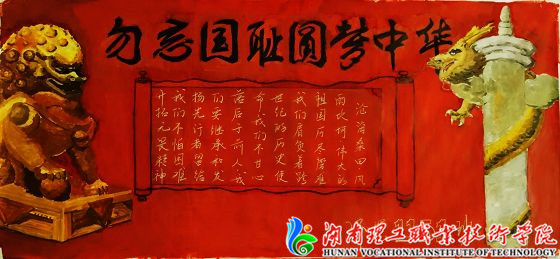 勿忘国耻圆梦中华
沧海桑田风
雨坎坷伟大的
祖国历尽磨难
我们肩负着跨
世纪的历史使
命我们不甘心
落后于前人我
们要继承和发
扬先行者留给
我们不怕困难
开拓无畏精神
湖南理工职业技术学院
HUNAN VOCATIONAL INSTITUTE OF TECHNOLOGY